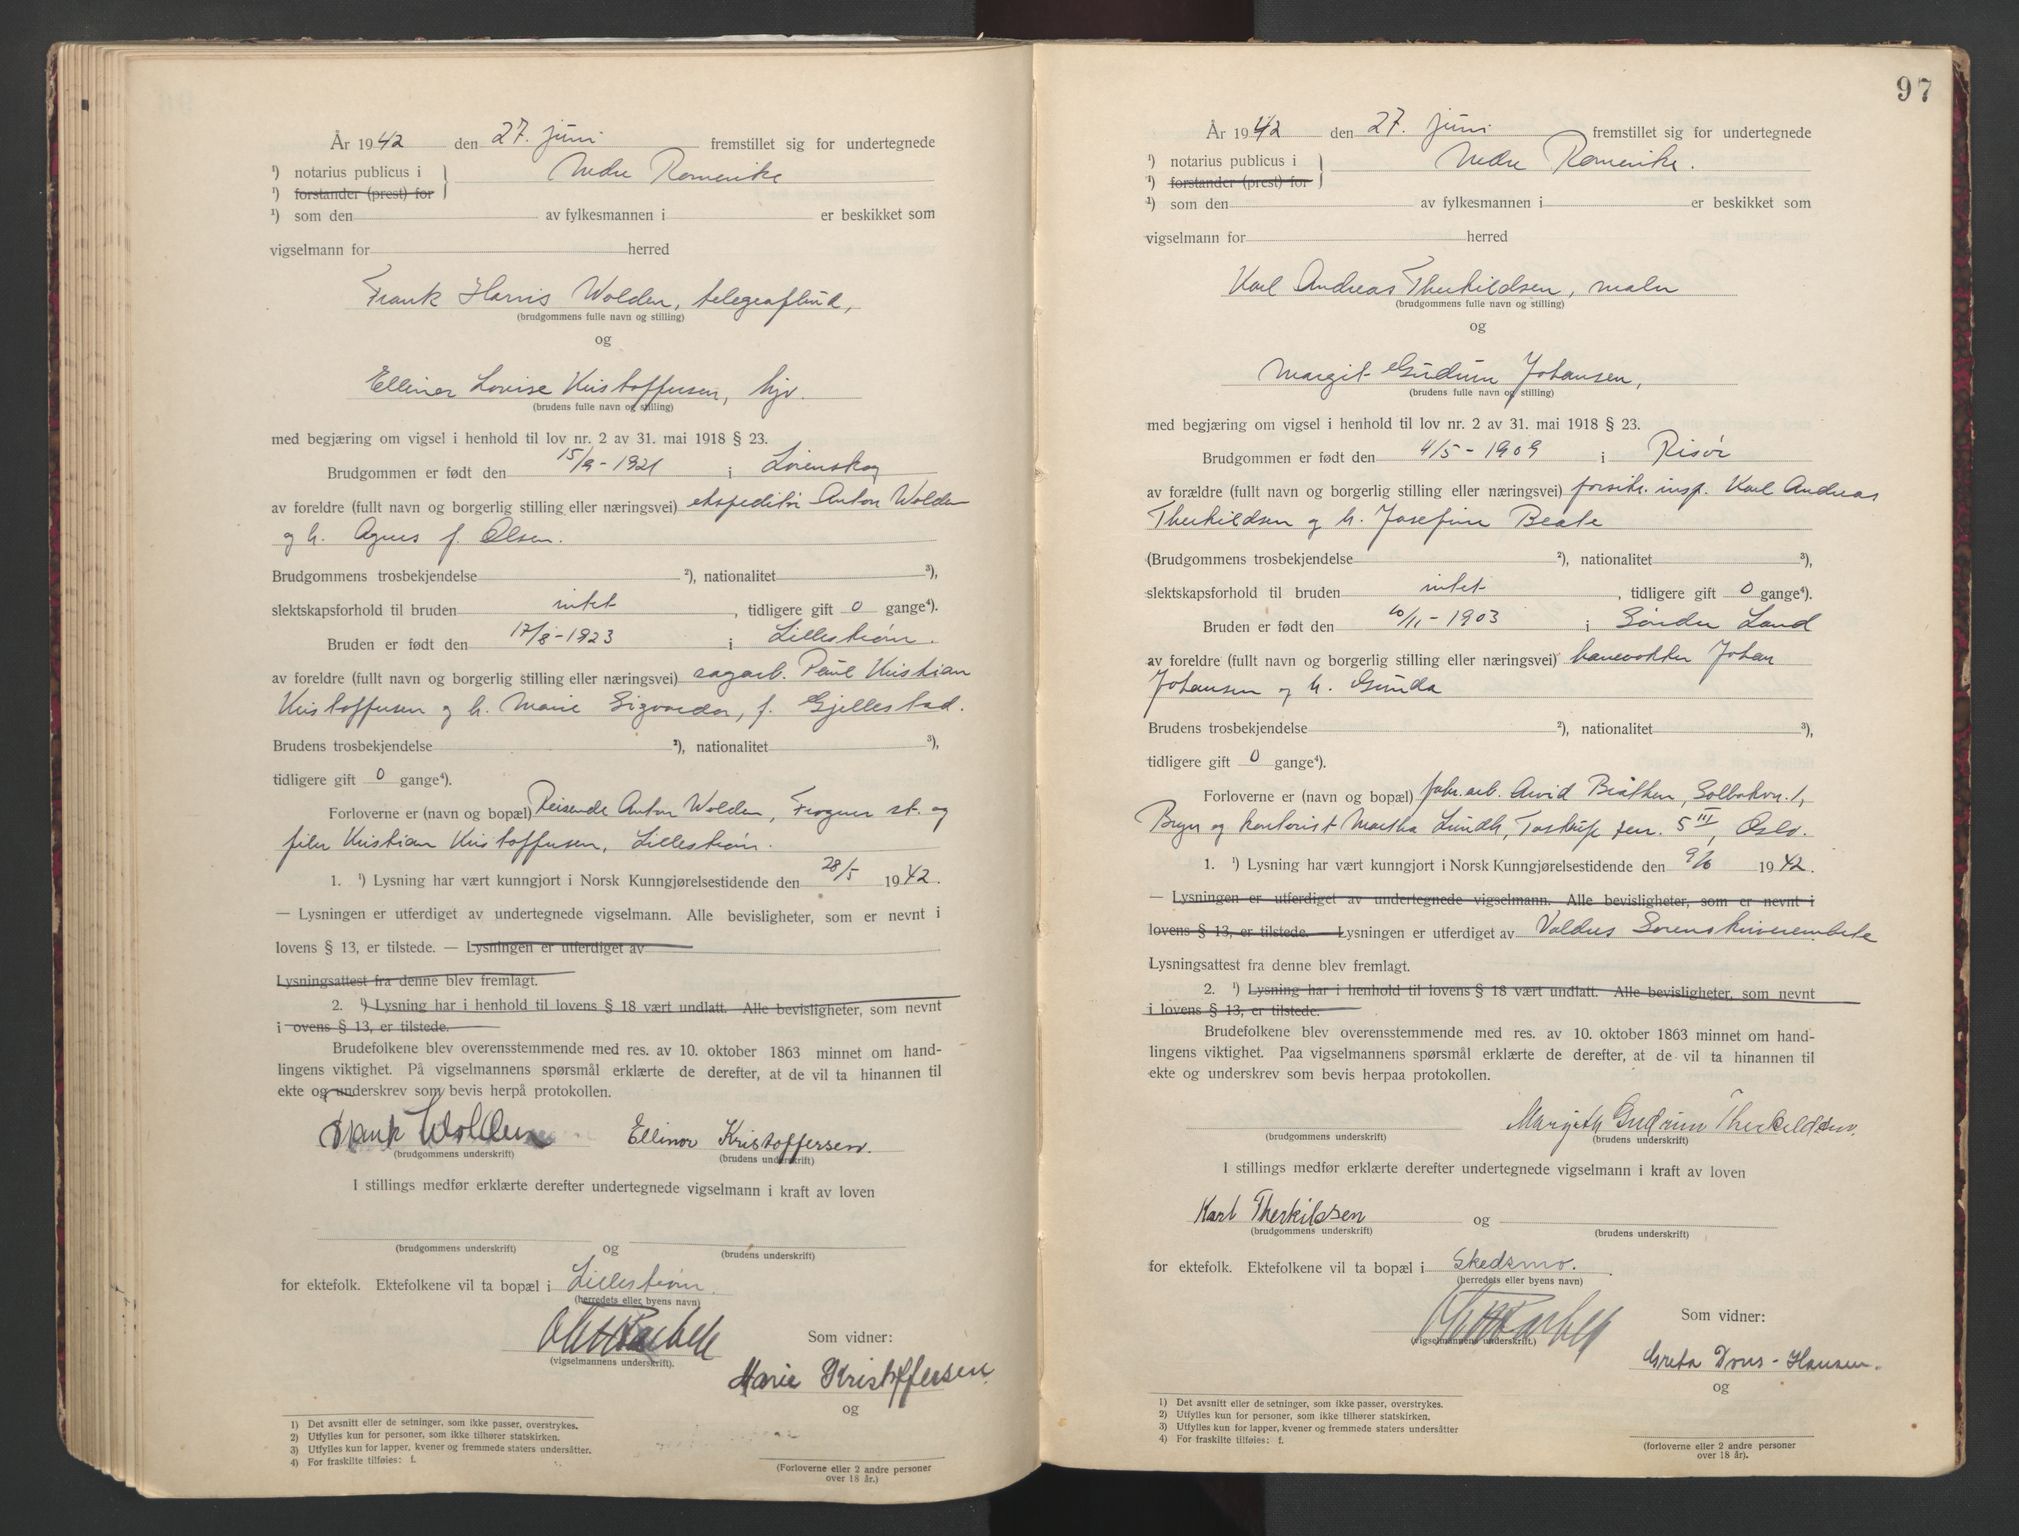 År 1942 den 27. juni fremstillet sig for undertegnede
¹) notarius publicus i } Nedre Romerike
¹) forstander (prest) for
¹) som den av fylkesmannen i er beskikket som
vigselmann for herred
Frank Harris Wolden, telegraflind,
(brudgommens fulle navn og stilling)
og
Ellinor Lovise Kristoffersen, hjv.
(brudens fulle navn og stilling)
med begjæring om vigsel i henhold til lov nr. 2 av 31. mai 1918 § 23.
Brudgommen er født den 15/9-1921 i Lørenskog
av foreldre (fullt navn og borgerlig stilling eller næringsvei) ekspeditør Anton Wolden
og h. Agnes f. Olsen.
Brudgommens trosbekjendelse ²), nationalitet ³),
slektskapsforhold til bruden intet, tidligere gift 0 gange⁴).
Bruden er født den 17/8-1923 i Lillestrøm.
av foreldre (fullt navn og borgerlig stilling eller næringsvei) sagarb. Paul Kristian
Kristoffersen og h. Marie Sigvarda, f. Gjellestad.
Brudens trosbekjendelse ²), nationalitet ³),
tidligere gift 0 gange⁴).
Forloverne er (navn og bopæl) Reisende Anton Wolden, Frogner st. og
filer Kristian Kristoffersen, Lillestrøm.
1. ¹) Lysning har vært kunngjort i Norsk Kunngjørelsestidende den 28/5 1942.
— Lysningen er utferdiget av undertegnede vigselmann. Alle bevisligheter, som er nevnt i
lovens § 13, er tilstede. — Lysningen er utferdiget av
Lysningsattest fra denne blev fremlagt.
2. ¹) Lysning har i henhold til lovens § 18 vært undlatt. Alle bevisligheter, som nevnt
i ovens § 13, er tilstede.
Brudefolkene blev overensstemmende med res. av 10. oktober 1863 minnet om hand-
lingens viktighet. På vigselmannens spørsmål erklærte de derefter, at de vil ta hinannen til
ekte og underskrev som bevis herpå protokollen.
Frank Wolden Ellinor Kristoffersen.
(brudgommens underskrift) (brudens underskrift)
I stillings medfør erklærte derefter undertegnede vigselmann i kraft av loven
og
(brudgommens underskrift) (brudens underskrift)
for ektefolk. Ektefolkene vil ta bopæl i Lillestrøm.
(herredets eller byens navn)
(vigselmannens underskrift).
Som vidner:
Marie Kristoffersen.
og
1) Det avsnitt eller de setninger, som ikke passer, overstrykes.
2) Utfylles kun for personer, som ikke tilhører statskirken.
3) Utfylles kun for lapper, kvener og fremmede staters undersåtter.
4) For fraskilte tilføies: f.
(Forloverne eller 2 andre personer
over 18 år.)
97
År 1942 den 27. juni fremstillet sig for undertegnede
¹) notarius publicus i } Nedre Romerike.
¹) forstander (prest) for
¹) som den av fylkesmannen i er beskikket som
vigselmann for herred
Karl Andreas Therkildsen, maler
(brudgommens fulle navn og stilling)
og
Margit Gudrun Johansen,
(brudens fulle navn og stilling)
med begjæring om vigsel i henhold til lov nr. 2 av 31. mai 1918 § 23.
Brudgommen er født den 4/5-1909 i Risør
av forældre (fullt navn og borgerlig stilling eller næringsvei) forsikr. insp. Karl Andreas
Therkildsen og h. Josefine Beate
(Brudgommens trosbekjendelse ²), nationalitet ³),
slektskapsforhold til bruden intet, tidligere gift 0 gange⁴).
Bruden er født den 10/11-1903 i Sønder Land
av foreldre (fullt navn og borgerlig stilling eller næringsvei) banevokter Johan
Johansen og h. Gunda
Brudens trosbekjendelse ²), nationalitet ³),
tidligere gift 0 gange⁴).
Forloverne er (navn og bopæl) fabr.arb. Arvid Bråthen, Solbakkv. 1,
Bryn og kontorist Martha Lundh, Tostrup terr. 5 III, Oslo.
1. ¹) Lysning har vært kunngjort i Norsk Kunngjørelsestidende den 9/6 1942.
— Lysningen er utferdiget av undertegnede vigselmann. Alle bevisligheter, som er nevnt i
lovens § 13, er tilstede. — Lysningen er utferdiget av Valdres Sorenskriverembete
Lysningsattest fra denne blev fremlagt.
2. ¹) Lysning har i henhold til lovens § 18 vært undlatt. Alle bevisligheter, som nevnt
i lovens § 13, er tilstede.
Brudefolkene blev overensstemmende med res. av 10. oktober 1863 minnet om hand-
lingens viktighet. Paa vigselmannens spørsmål erklærte de derefter, at de vil ta hinannen til
ekte og underskrev som bevis herpaa protokollen.
Margith Gudrun Therkildsen.
(brudgommens underskrift) (brudens underskrift)
I stillings medfør erklærte derefter undertegnede vigselmann i kraft av loven
Karl Therkildsen og
(brudgommens underskrift) (brudens underskrift)
for ektefolk. Ektefolkene vil ta bopæl i Skedsmo.
(herredets eller byens navn)
(vigselmannens underskrift.)
Som vidner:
Greta Dons-Hansen.
og
1) Det avsnitt eller de setninger, som ikke passer, overstrykes.
2) Utfylles kun for personer, som ikke tilhører statskirken.
3) Utfylles kun for lapper, kvener og fremmede staters undersåtter
4) For fraskilte tilføies: f.
(forloverne eller 2 andre personer
over 18 år).